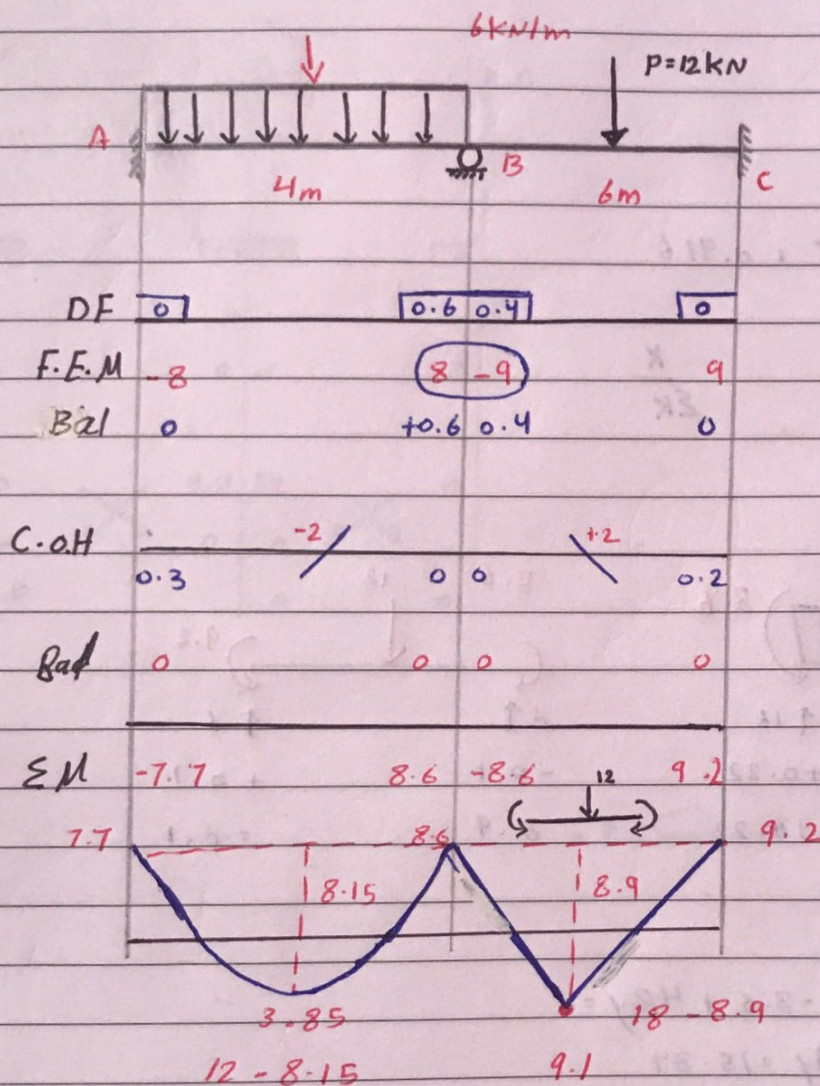 6KN/m
P=12KN
A
B
C
4m
6m
DF 0 0.6 0.4 0
F.E.M -8 8 -9 9
Bal 0 +0.6 0.4 0
C.O.H -2 +2
0.3 0 0 0.2
Bal 0 0 0 0
ΣM -7.7 8.6 -8.6 9.2
12
7.7 8.6 9.2
8.15 8.9
3.85 18 - 8.9
12 - 8.15 9.1